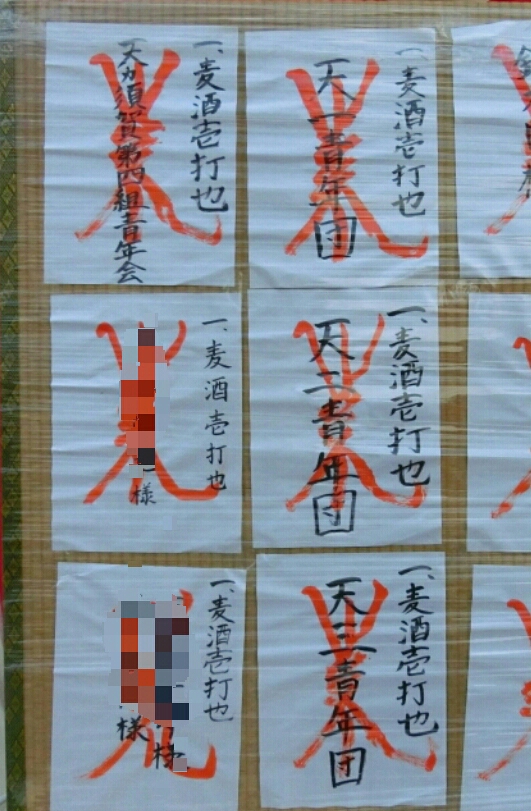 一、麦酒壱打也
天一青年団
一、麦酒壱打也
天力須賀第四組青年会
一、麦酒壱打也
天二青年団
一、麦酒壱打也
様
一、麦酒壱打也
天三青年団
一、麦酒壱打也
様
様